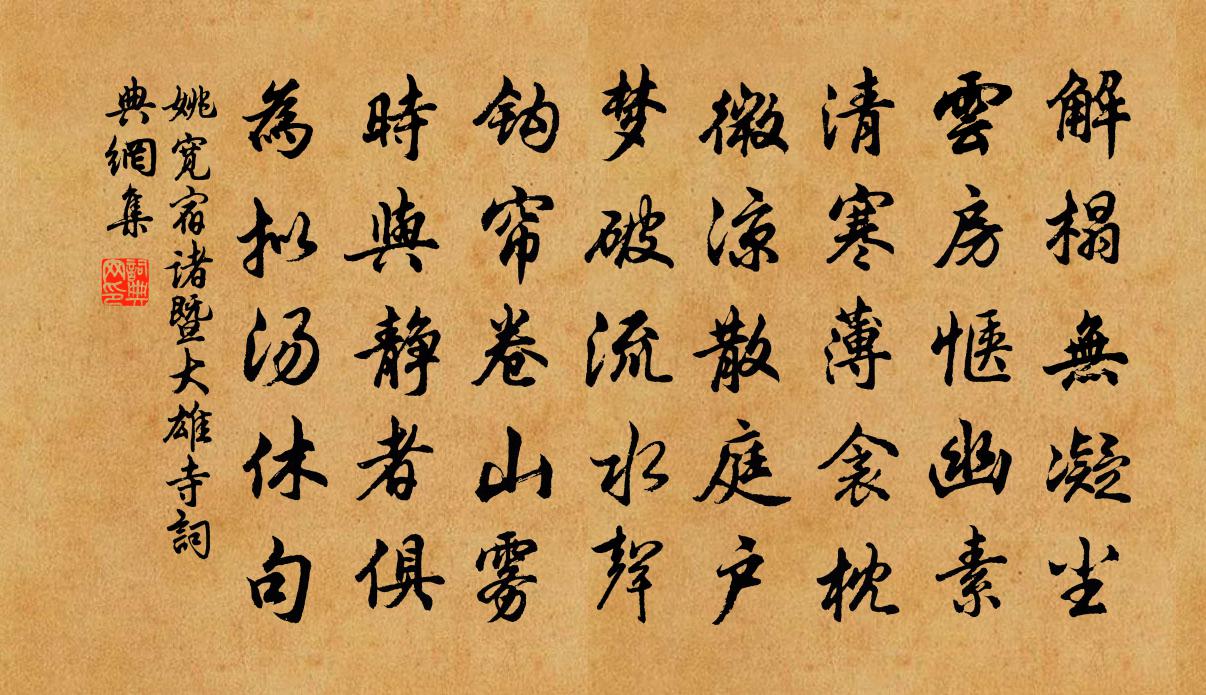 解榻無凝尘
雲房惬幽素
清寒薄衾枕
微涼散庭户
梦破流水聲
鈎帘卷山雾
時與静者俱
為拟汤休句
姚寬宿諸暨大雄寺詞
典網集
詞典
网印